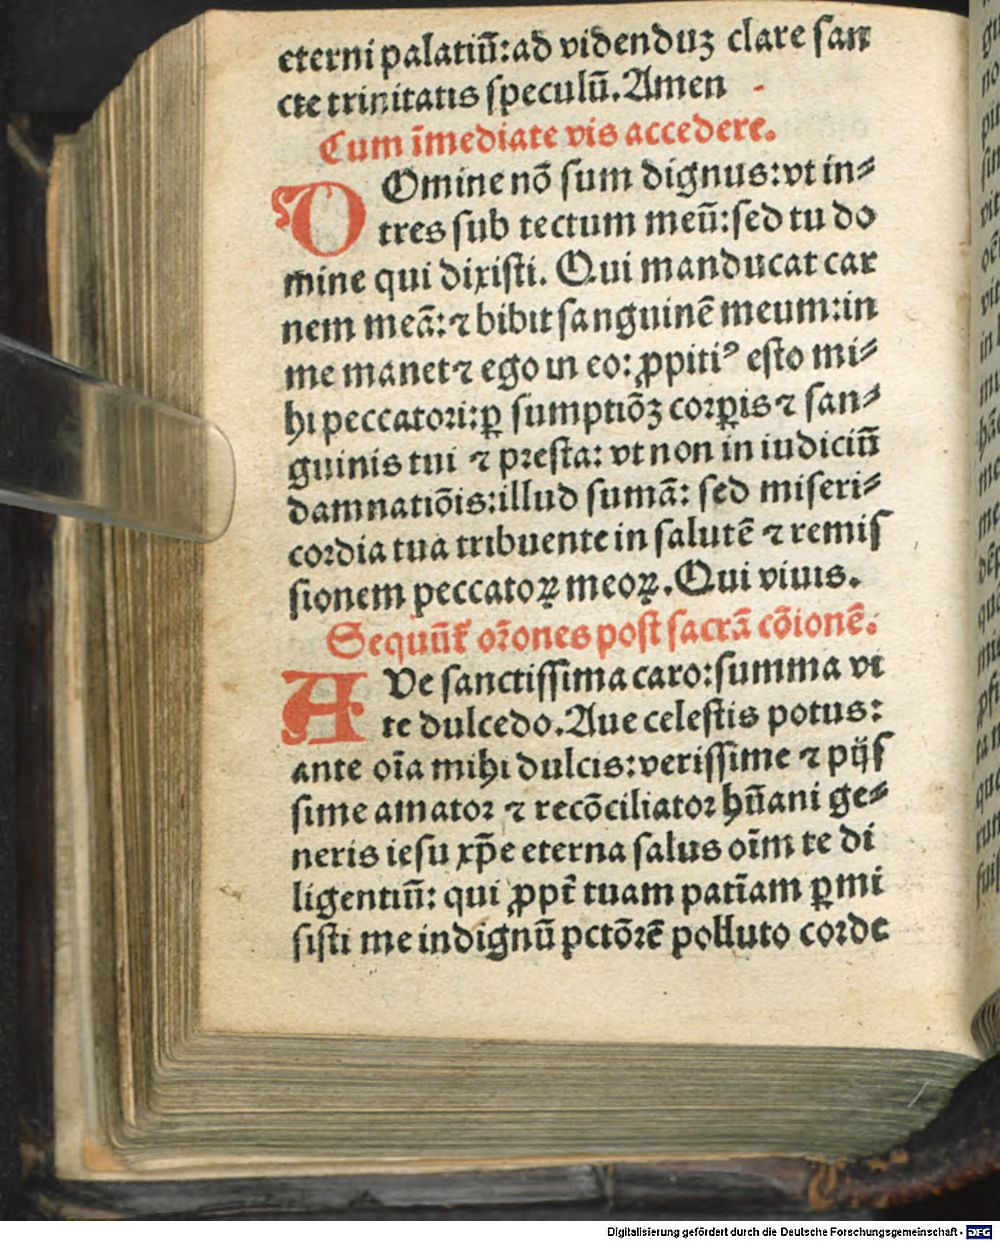 eterni palatiū:ad videnduꝫ clare san
cte trinitatis speculū. Amen
Cum īmediate vis accedere.
DOmine nō sum dignus: vt in⸗
tres sub tectum meū: sed tu do
mine qui dixisti. Qui manducat car
nem meā: ⁊ bibit sanguinē meum: in
me manet ⁊ ego in eo: ꝓpitiꝰ esto mi⸗
hi peccatori: ꝑ sumptiōꝫ corꝑis ⁊ san⸗
guinis tui ⁊ presta: vt non in iudiciū
damnatiōis: illud sumā: sed miseri⸗
cordia tua tribuente in salutē ⁊ remis
sionem peccatoꝝ meoꝝ. Qui viuis.
Sequūt᷑ or̄ones post sacrā cōionē.
AVe sanctissima caro: summa vi
te dulcedo. Aue celestis potus:
ante oīa mihi dulcis: verissime ⁊ pijs
sime amator ⁊ recōciliator hūani ge⸗
neris iesu xp̄e eterna salus oīm te di
ligentiū: qui ꝓpt̄ tuam patīam ꝑmi
sisti me indignū pctōrē polluto corde
Digitalisierung gefördert durch die Deutsche Forschungsgemeinschaft - DFG